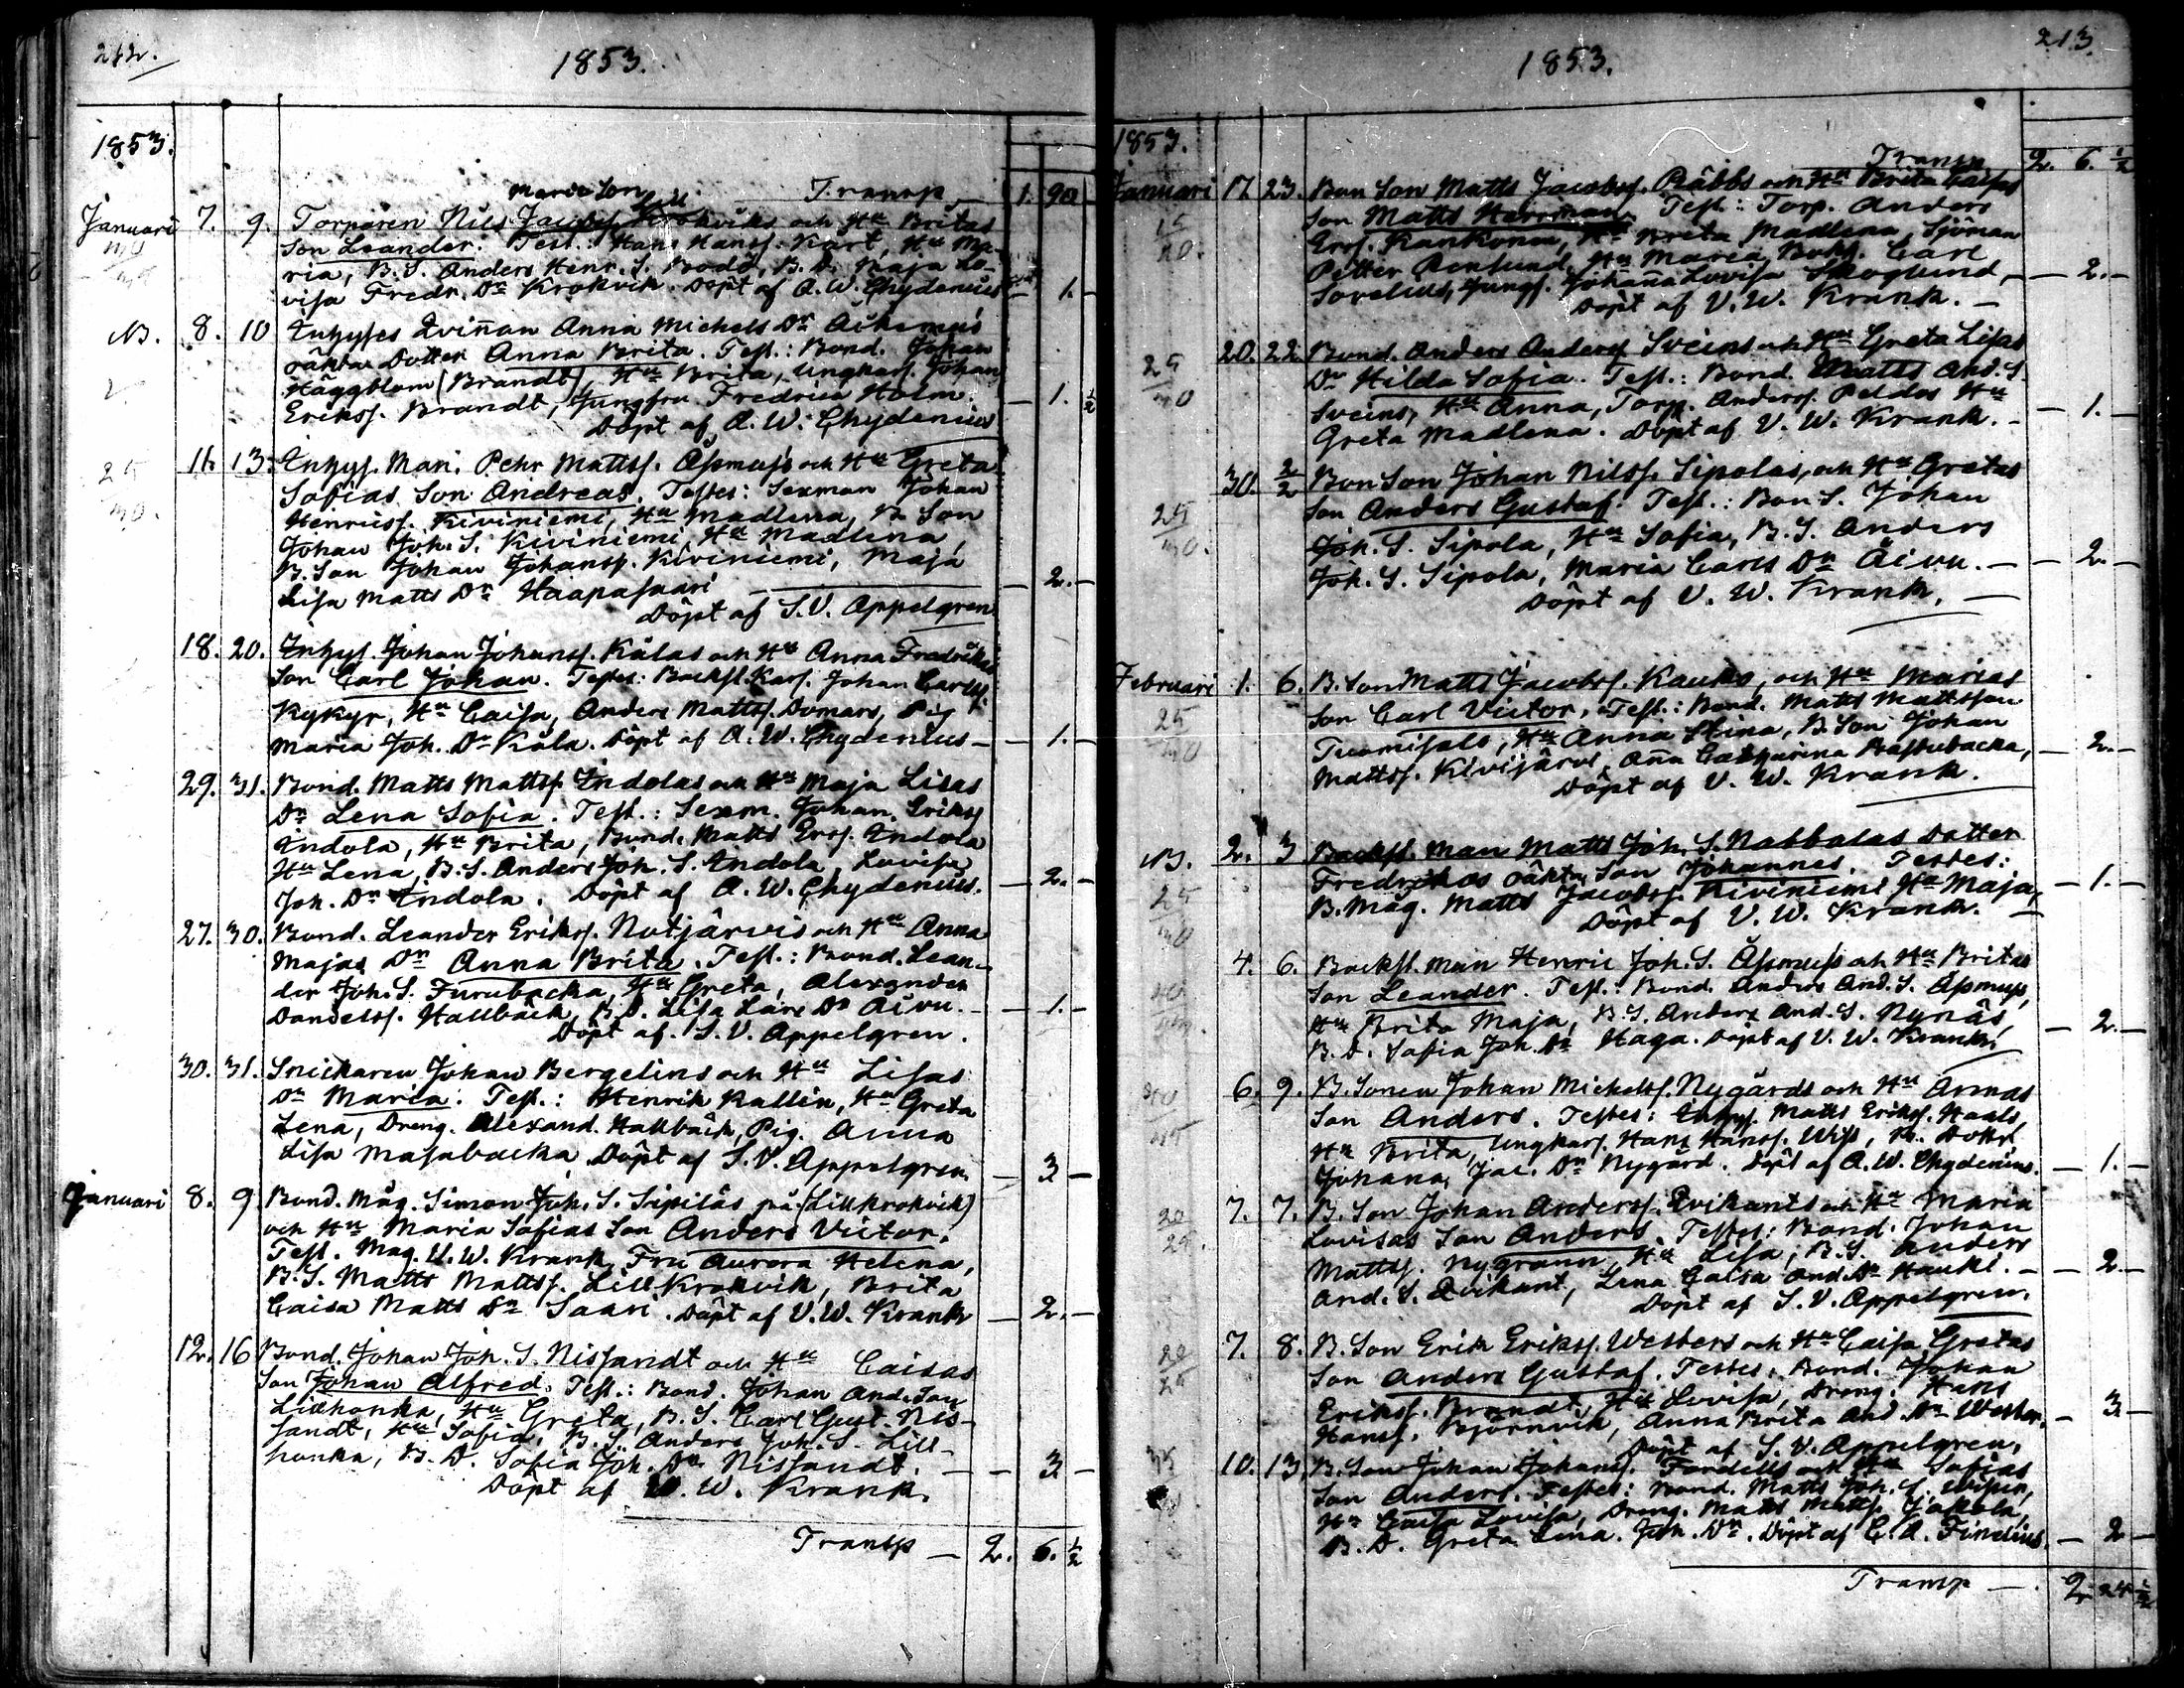 212.
1853.
1853.
Transp 1. 90
Mariæ Son
Januari 7. 9. Torparen Nils Jacobss. Krokviks och Hu Britas
Son Leander. Test.: Hans Hanss. Kart, Hu Ma-
ria, B. S. Anders Henr. S. Bodö, B. D. Maja Lo-
visa Fredr. Dr Krokvik. Döpt af A. W. Chydenius — 1. —
NB. 8. 10 Inhyses Qvinnan Anna Michels Dr Åskmus
oäkta Dotter Anna Brita. Test.: Bond. Johan
Häggblom (Brandt), Hu Brita, Ungkarl. Johan
Erikss. Brandt, Jungfru Fredrica Holm. — 1. ½
Döpt af A. W. Chydenius
11. 13. Inhys. Man. Pehr Mattss. Åsmus's och Hu Greta
Sofias Son Andreas. Testes: Sexman Johan
Henrikss. Kiviniemi, Hu Madlena, B. Son
Johan Joh. S. Kiviniemi, Hu Madlena,
B. Son Johan Johanss. Kiviniemi, Maja
Lisa Matts Dr Haapasaari — 2. —
Döpt af S. V. Appelgren
18. 20. Inhys. Johan Johanss. Kålas och Hu Anna Fredrikas
Son Carl Johan. Testes: Backst. Karl. Johan Carlss.
Kykyr, Hu Caisa, Anders Mattss. Domars, Pig
Maria Joh. Dr Kåla. Döpt af A. W. Chydenius — 1. —
29. 31. Bond. Matts Mattss. Indolas och Hu Maja Lisas
Dr Lena Sofia. Test.: Sexm. Johan Erikss.
Indola, Hu Brita, Bond. Matts Ers. Indola
Hu Lena, B. S. Anders Joh. S. Indola, Lovisa
Joh. Dr Indola. Döpt af A. W. Chydenius. — 2. —
27. 30. Bond. Leander Erikss. Nutjärvis och Hu Anna
Majas Dr Anna Brita. Test.: Bond. Lean-
der Joh. S. Furubacka, Hu Greta, Alexander
Danielss. Hallbäck, B. D. Lisa Lars Dr Äivu. — 1. —
Döpt af S. V. Appelgren.
30. 31. Snickaren Johan Bergelins och Hu Lisas
Dr Maria. Test.: Henrik Kallin, Hu Greta
Lena, Dreng. Alexand. Hallbäck, Pig. Anna
Lisa Masabacka. Döpt af S. V. Appelgren — 3 —
Januari 8. 9 Bond. Måg. Simon Joh. S. Sipiläs på (Lillkrokvik)
och Hu Maria Sofias Son Anders Victor.
Test. Mag. V. W. Krank, Fru Aurora Helena,
B. S. Matts Mattss. Lill Krokvik, Brita
Caisa Matts Dr Saari. Döpt af V. W. Krank — 2. —
12. 16 Bond. Johan Joh. S. Nissandt och Hu Caisas
Son Johan Alfred. Test.: Bond. Johan And. Son
Lillhonka, Hu Greta, B. S. Carl Gust. Nis-
sandt, Hu Sofia, B. S. Anders Joh. S. Lill-
honka, B. D. Sofia Joh. Dr Nissandt. — 3. —
Döpt af V. W. Krank.
Transp — 2. 6. ½
213.
1853.
1853.
Transp 2. 6. ½
Januari 17. 23. Bon Son Matts Jacobss. Räbbs och Hu Brita Caisas
Son Matts Herrman. Test.: Torp. Anders
Ers. Kankonen, Hu Brita Madlena, Sjöman
Petter Renlund, Hu Maria, Bokh. Carl
Sovelius, Jungf. Johanna Lovisa Skoglund — 2. —
Döpt af V. W. Krank. —
20. 22 Bond. Anders Anderss. Sveins och Hu Greta Lisas
Dr Hilda Sofia. Test.: Bond. Matts And. S.
Sveins, Hu Anna, Torp. Anderss. Peldos Hu
Greta Madlena. Döpt af V. W. Krank. — 1. —
30. 2/2 Bon Son Johan Nilss. Sipolas, och Hu Gretas
Son Anders Gustaf. Test.: Bon S. Johan
Joh. S. Sipola, Hu Sofia, B. S. Anders
Joh. S. Sipola, Maria Carls Dr Äivu. — 2. —
Döpt af V. W. Krank. —
Februari 1. 6. B. Son Matts Jacobss. Kauko, och Hu Marias
Son Carl Victor. Test.: Bond. Matts Mattsson
Tuomisalo, Hu Anna Stina, B. Son Johan
Mattss. Kivijärvi, Anna Catharina Basbubacka, — 2. —
Döpt af V. W. Krank.
NB. 2. 3 Backst. man Matts Joh. S. Nabbalas Dotter
Fredrikas oäkta Son Johannes. Testes:
B. Måg. Matts Jacobss. Kiviniemi Hu Maja, — 1. —
Döpt af V. W. Krank.
4. 6. Backst. man Henric Joh. S. Åsmus's och Hu Britas
Son Leander. Test.: Bond. Anders And. S. Åsmuss,
Hu Brita Maja, B. S. Anders And. S. Nynäs,
B. D. Sofia Joh. Dr Haga. Döpt af V. W. Krank. — 2. —
6. 9. B. Sonen Johan Michelss. Nygårds och Hu Annas
Son Anders. Testes: Inhys. Matts Erikss. Haals,
Hu Brita, Ungkarl. Hans Hanss. Wiss, B. Dottr
Johana Jac. Dr Nygård. Döpt af A. W. Chydenius. — 1. —
7. 7. B. Son Johan Anderss. Qvikants och Hu Maria
Lovisas Son Anders. Testes: Bond. Johan
Mattss. Nygrann, Hu Lisa, B. S. Anders
And. S. Qvikant, Lena Caisa And. Dr Hauki. — 2 —
Döpt af S. V. Appelgren.
7. 8. B. Son Erik Erikss. Westers och Hu Caisa Gretas
Son Anders Gustaf. Testes: Bond. Johan
Erikss. Brandt, Hu Lovisa, Dreng. Hans
Hanss. Björnvik, Anna Brita And. Dr Wester. — 3. —
Döpt af S. V. Appelgren.
10. 13 B. Son Johan Johanss. Fordells och Hu Sofias
Son Anders. Testes: Bond. Matts Joh. S.
Hu Caisa Lovisa, Dreng. Matts Mattss. Jakola,
B. D. Greta Lena Joh. Dr. Döpt af C. A. Findius. — 2 —
Transp — 2 24 ½